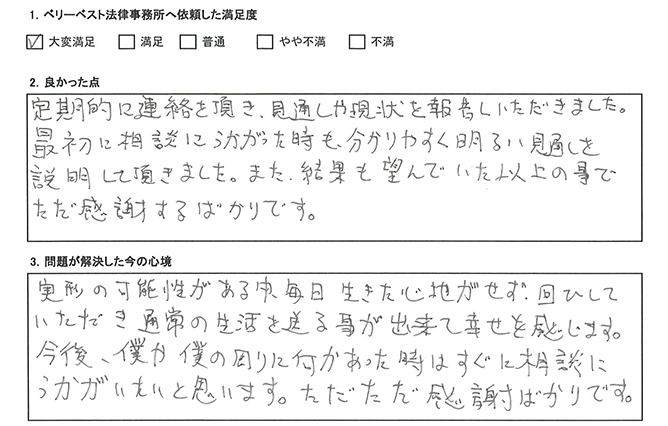 1. ベリーベスト法律事務所へ依頼した満足度
☑ 大変満足 □ 満足 □ 普通 □ やや不満 □ 不満
2. 良かった点
定期的に連絡を頂き、見通しや現状を報告しいただきました。
最初に相談にうかがった時も、分かりやすく明るい見通しを
説明して頂きました。また、結果も望んでいた以上の事で
ただ感謝するばかりです。
3. 問題が解決した今の心境
実刑の可能性がある中、毎日生きた心地がせず、回ひして
いただき通常の生活を送る事が出来て幸せを感じます。
今後、僕か僕の周りに何かあった時はすぐに相談に
うかがいたいと思います。ただただ感謝ばかりです。